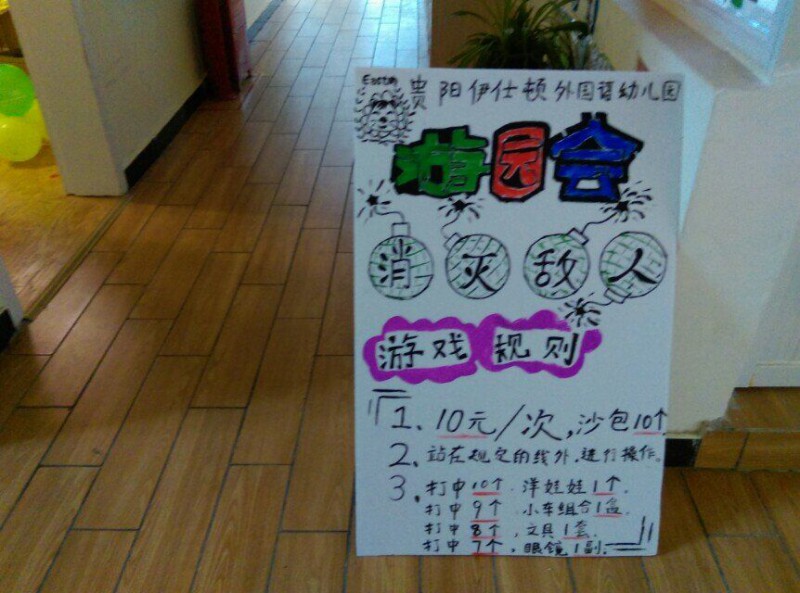 Easton 贵阳伊仕顿外国语幼儿园
游园会
消灭敌人
游戏规则
1、10元/次,沙包10个
2、站在规定的线外,进行操作。
3、打中10个、洋娃娃1个.
打中9个、小车组合1盒.
打中8个,文具1套.
打中7个,眼镜1副.